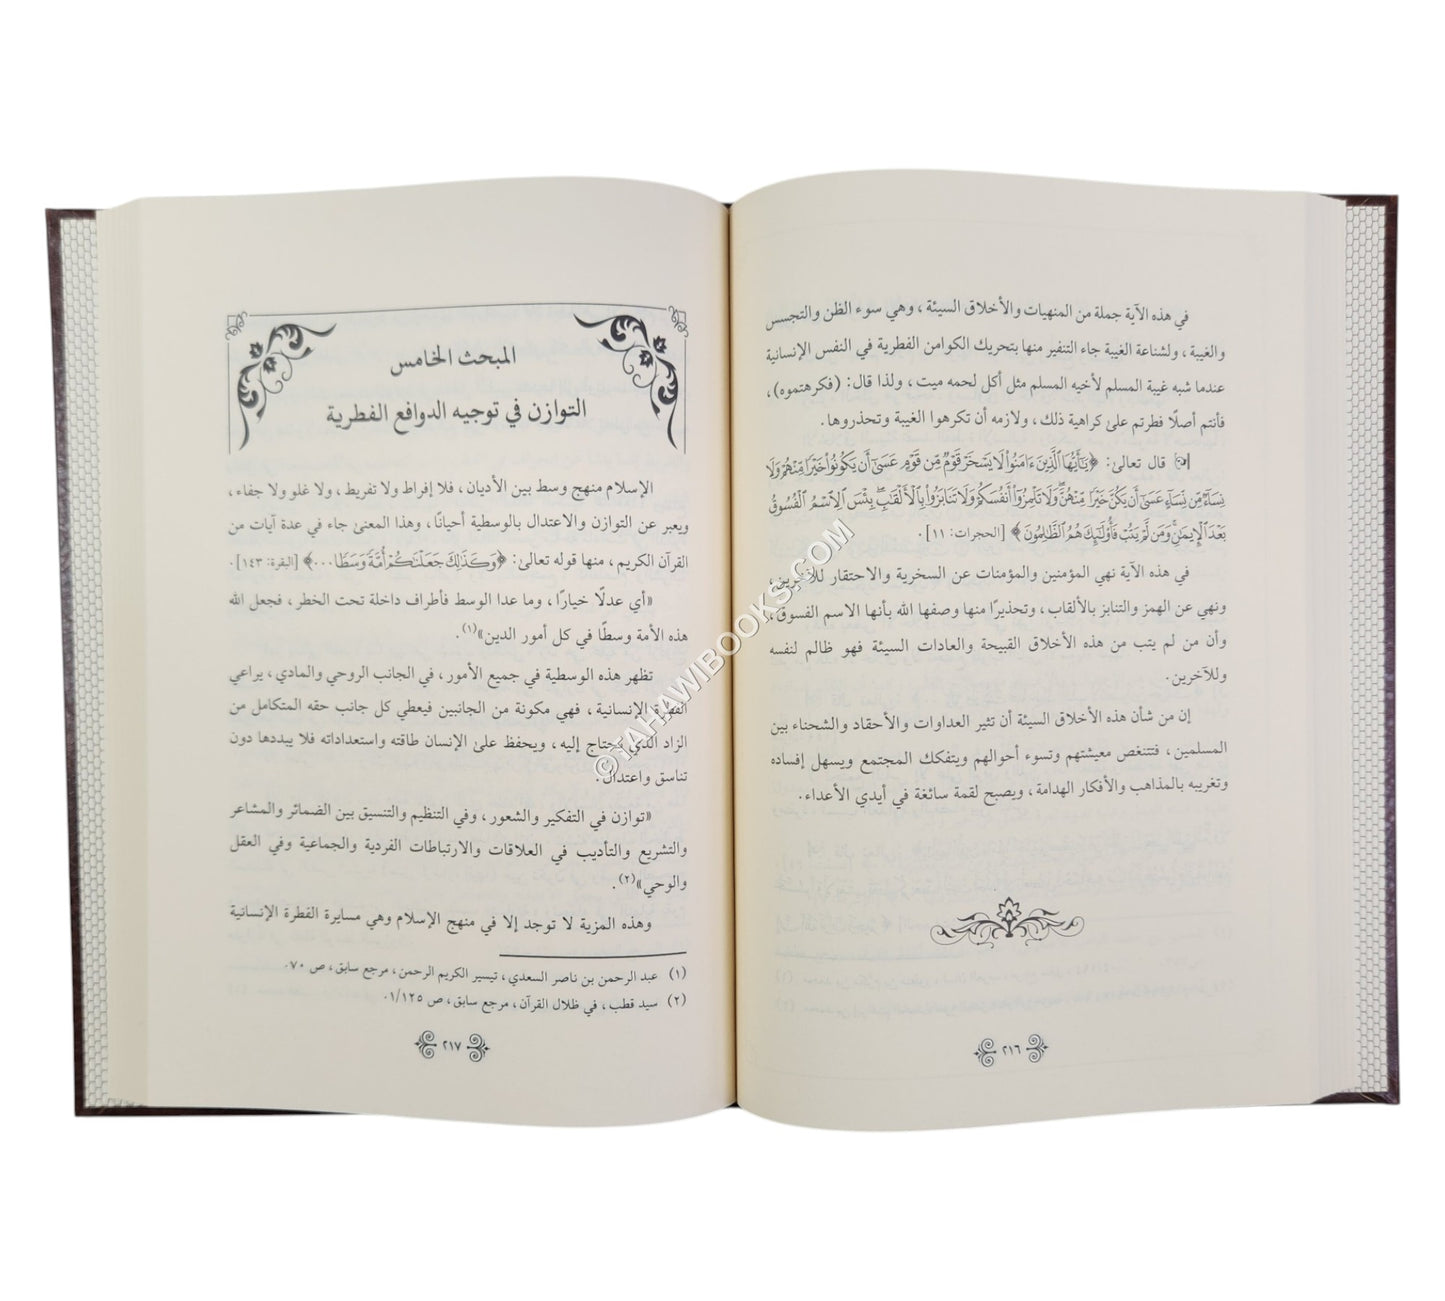 في هذه الآية جملة من المنهيات والأخلاق السيئة ، وهي سوء الظن والتجسس
والغيبة ، ولشناعة الغيبة جاء التنفير منها بتحريك الكوامن الفطرية في النفس الإنسانية
عندما شبه غيبة المسلم لأخيه المسلم مثل أكل لحمه ميت ، ولذا قال: (فكرهتموه)،
فأنتم أصلًا فطرتم على كراهية ذلك ، ولازمه أن تكرهوا الغيبة وتحذروها .
قال تعالى: ﴿يَٰٓأَيُّهَا ٱلَّذِينَ ءَامَنُوا۟ لَا يَسْخَرْ قَوْمٌ مِّن قَوْمٍ عَسَىٰٓ أَن يَكُونُوا۟ خَيْرًا مِّنْهُمْ وَلَا
نِسَآءٌ مِّن نِّسَآءٍ عَسَىٰٓ أَن يَكُنَّ خَيْرًا مِّنْهُنَّ ۖ وَلَا تَلْمِزُوٓا۟ أَنفُسَكُمْ وَلَا تَنَابَزُوا۟ بِٱلْأَلْقَٰبِ ۖ بِئْسَ ٱلِٱسْمُ ٱلْفُسُوقُ
بَعْدَ ٱلْإِيمَٰنِ ۚ وَمَن لَّمْ يَتُبْ فَأُو۟لَٰٓئِكَ هُمُ ٱلظَّٰلِمُونَ﴾ [الحجرات: ١١] .
في هذه الآية نهي المؤمنين والمؤمنات عن السخرية والاحتقار للآخرين،
ونهي عن الهمز والتنابز بالألقاب ، وتحذيرًا منها وصفها الله بأنها الاسم الفسوق،
وأن من لم يتب من هذه الأخلاق القبيحة والعادات السيئة فهو ظالم لنفسه
وللآخرين .
إن من شأن هذه الأخلاق السيئة أن تثير العداوات والأحقاد والشحناء بين
المسلمين ، فتتنغص معيشتهم وتسوء أحوالهم ويتفكك المجتمع ويسهل إفساده
وتغريبه بالمذاهب والأفكار الهدامة ، ويصبح لقمة سائغة في أيدي الأعداء .
٢١٦
المبحث الخامس
التوازن في توجيه الدوافع الفطرية
الإسلام منهج وسط بين الأديان ، فلا إفراط ولا تفريط ، ولا غلو ولا جفاء ،
ويعبر عن التوازن والاعتدال بالوسطية أحيانًا ، وهذا المعنى جاء في عدة آيات من
القرآن الكريم ، منها قوله تعالى: ﴿وَكَذَٰلِكَ جَعَلْنَٰكُمْ أُمَّةً وَسَطًا...﴾ [البقرة: ١٤٣] .
«أي عدلًا خيارًا ، وما عدا الوسط فأطراف داخلة تحت الخطر ، فجعل الله
هذه الأمة وسطًا في كل أمور الدين»(١) .
تظهر هذه الوسطية في جميع الأمور ، في الجانب الروحي والمادي ، يراعي
الفطرة الإنسانية ، فهي مكونة من الجانبين فيعطي كل جانب حقه المتكامل من
الزاد الذي يحتاج إليه ، ويحفظ على الإنسان طاقته واستعداداته فلا يبددها دون
تناسق واعتدال .
«توازن في التفكير والشعور ، وفي التنظيم والتنسيق بين الضمائر والمشاعر
والتشريع والتأديب في العلاقات والارتباطات الفردية والجماعية وفي العقل
والوحي»(٢) .
وهذه المزية لا توجد إلا في منهج الإسلام وهي مسايرة الفطرة الإنسانية
(١) عبد الرحمن بن ناصر السعدي ، تيسير الكريم الرحمن، مرجع سابق ، ص ٧٠ .
(٢) سيد قطب ، في ظلال القرآن ، مرجع سابق ، ص ٠١/١٢٥
٢١٧
©TAHAWIBOOKS.COM